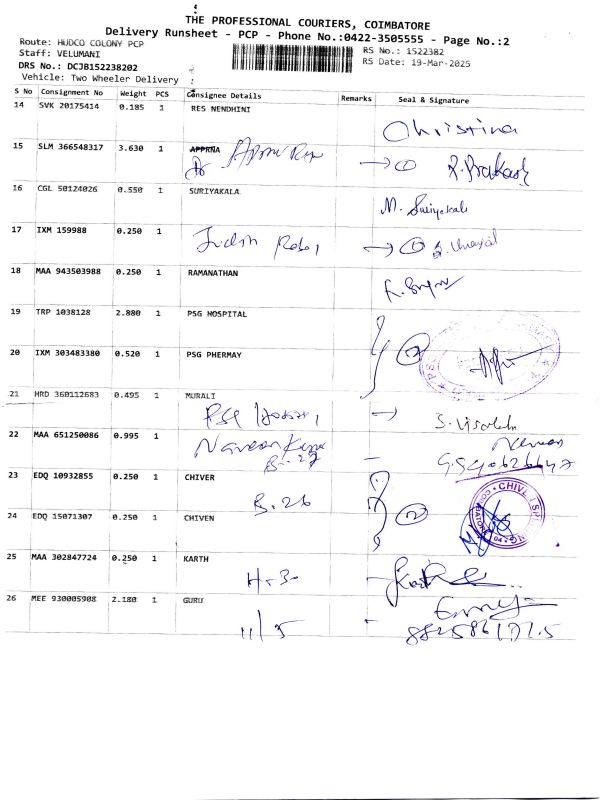 THE PROFESSIONAL COURIERS, COIMBATORE
Delivery Runsheet - PCP - Phone No.:0422-3505555 - Page No.:2
Route: HUDCO COLONY PCP
RS No.: 1522382
Staff: VELUMANI
RS Date: 19-Mar-2025
DRS No.: DCJB152238202
Vehicle: Two Wheeler Delivery
S No Consignment No Weight PCS Consignee Details Remarks Seal & Signature
14 SVK 20175414 0.185 1 RES NENDHINI
Christina
15 SLM 366548317 3.630 1 APPRNA
R. Prakash
16 CGL 50124026 0.550 1 SURIYAKALA
M. Suriyakala
17 IXM 159988 0.250 1
18 MAA 943503988 0.250 1 RAMANATHAN
19 TRP 1038128 2.880 1 PSG HOSPITAL
2
20 IXM 303483380 0.520 1 PSG PHERMAY
21 HRD 360112683 0.495 1 MURALI
22 MAA 651250086 0.995 1
Naveen
23 EDQ 10932855 0.250 1 CHIVER
B. 26
2
24 EDQ 15071307 0.250 1 CHIVEN
25 MAA 302847724 0.250 1 KARTH
H-30
26 MEE 930005908 2.180 1 GURU